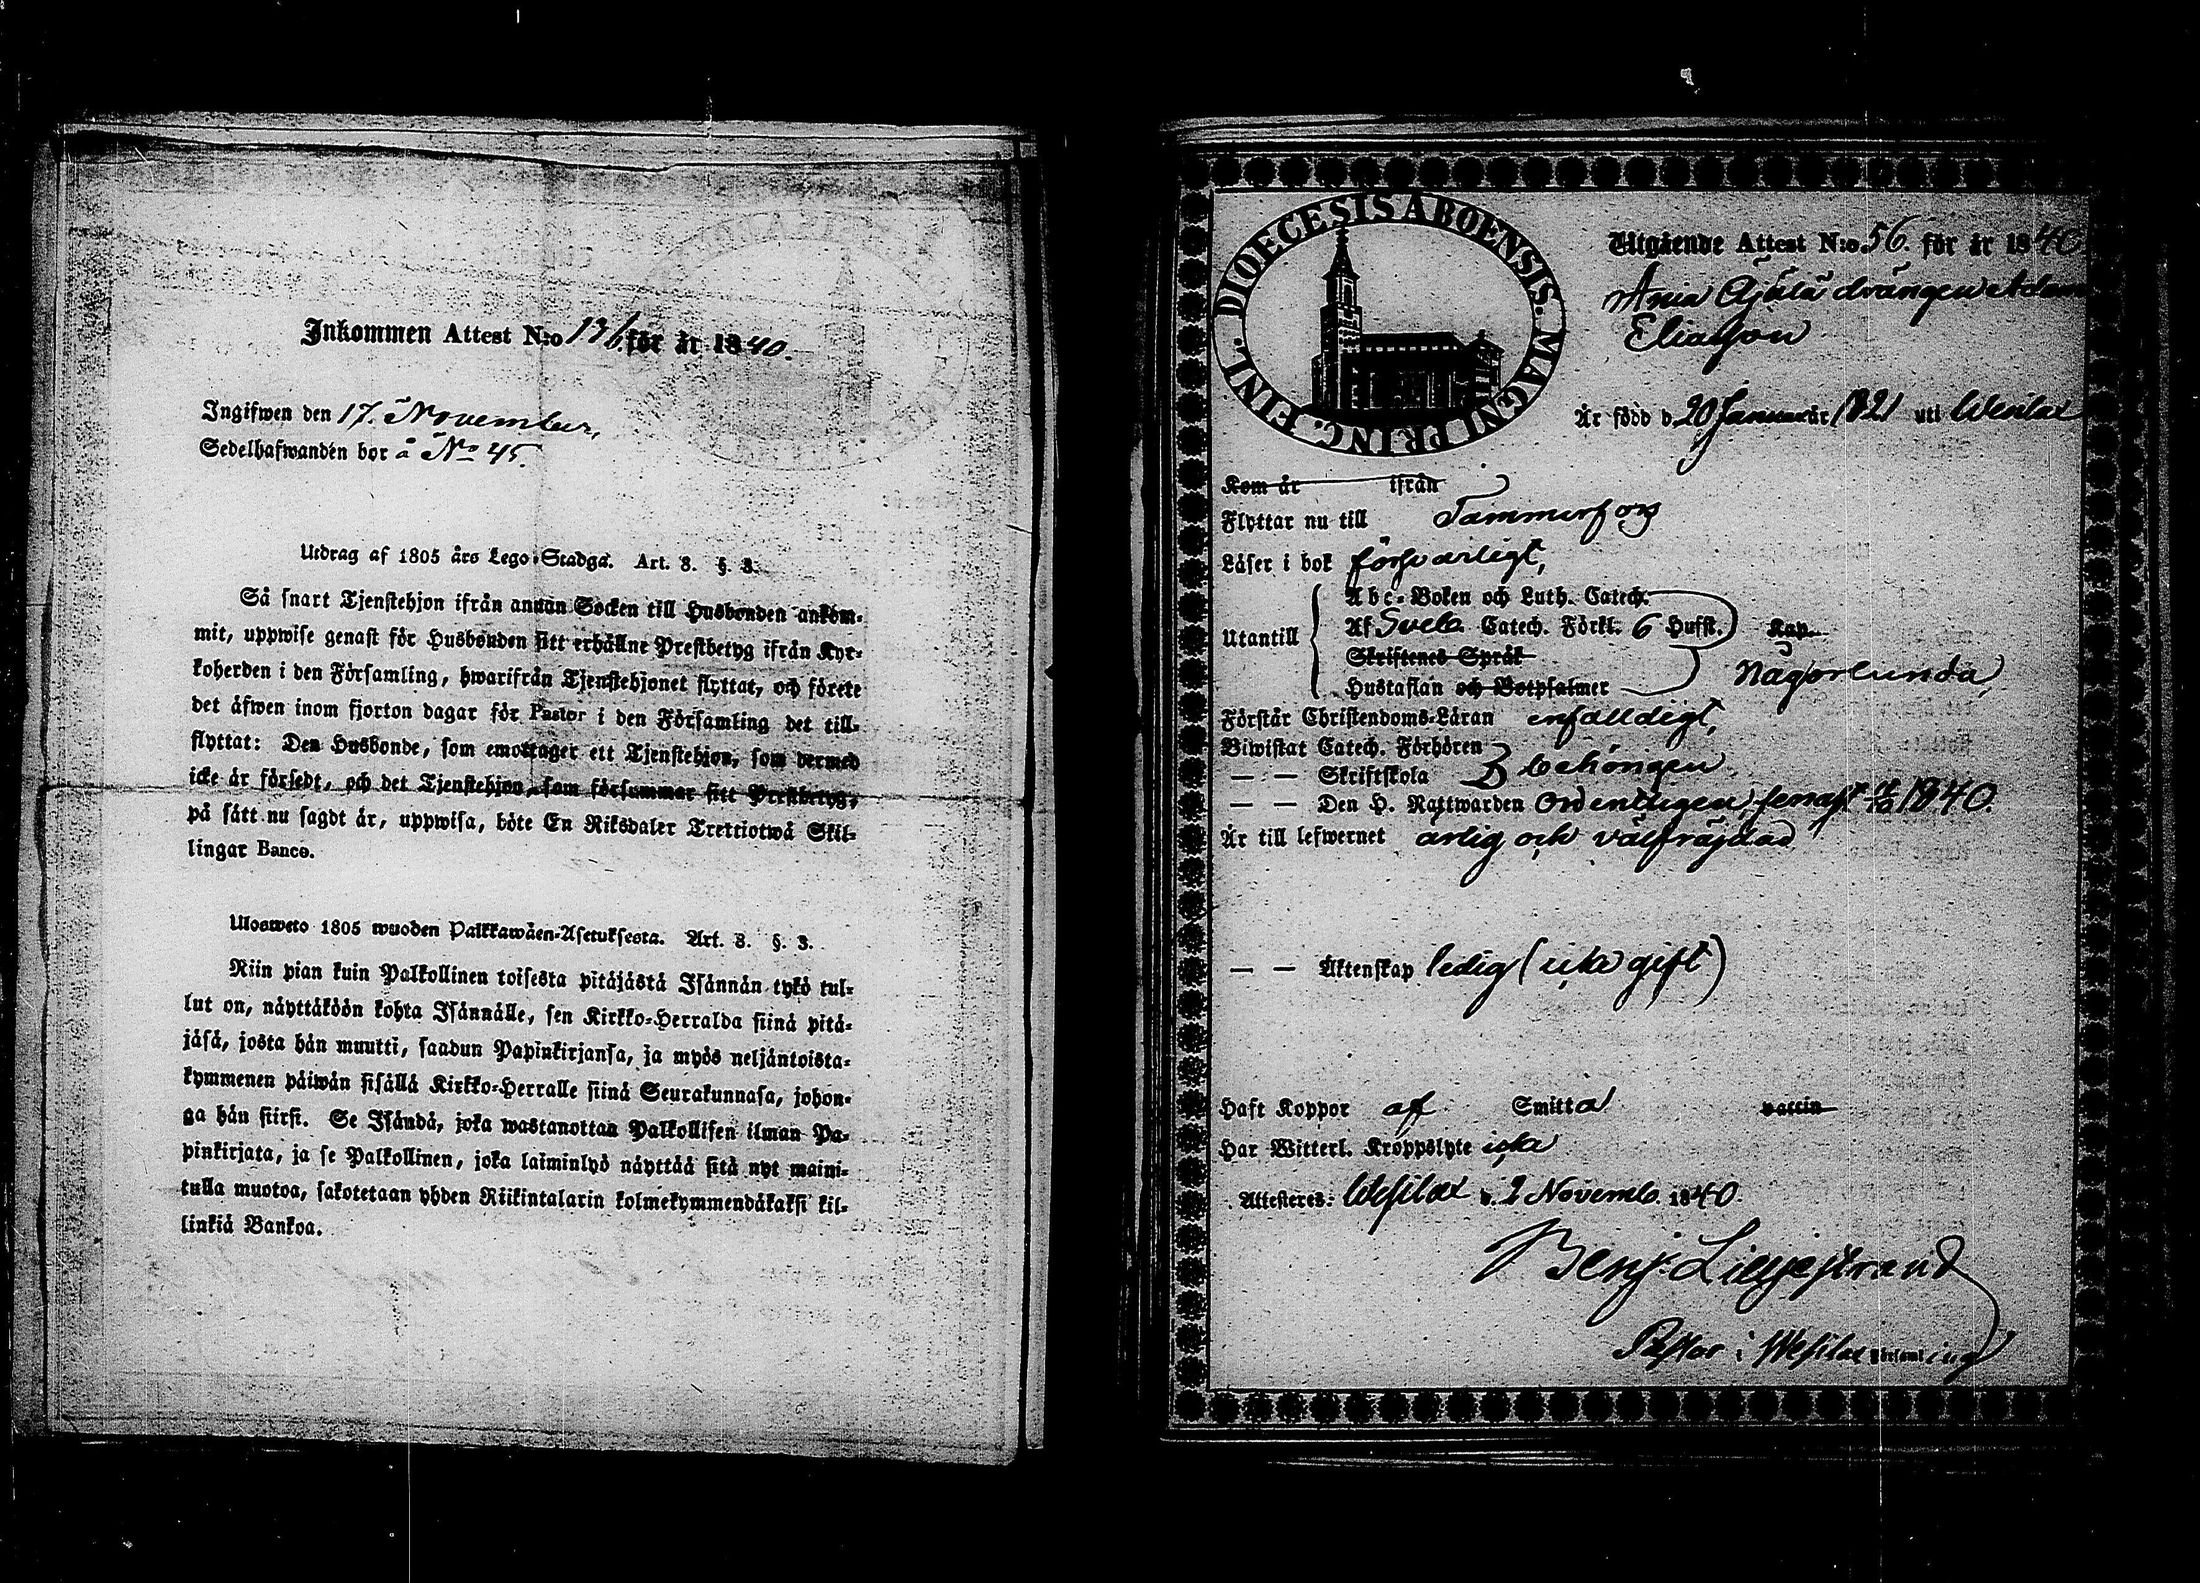 Inkommen Attest N:o 136 för år 1840.
Ingifwen den 17. November,
Sedelhafwanden bor å No 45.
Utdrag af 1805 års Lego-Stadga. Art. 8. §. 3.
Så snart Tjenstehjon ifrån annan Socken till Husbonden ankom-
mit, uppwise genast för Husbonden sitt erhållne Prestbetyg ifrån Kyr-
koherden i den Församling, hwarifrån Tjenstehjonet flyttat, och förete
det äfwen inom fjorton dagar för Pastor i den Församling det till-
flyttat: Den Husbonde, som emottager ett Tjenstehjon, som dermed
icke är försedt, och det Tjenstehjon, som försummar sitt Prestbetyg,
på sätt nu sagdt är, uppwisa, böte En Riksdaler Trettiotwå Skil-
lingar Banco.
Ulosweto 1805 wuoden Palkkawäen-Asetuksesta. Art. 8. §. 3.
Niin pian kuin Palkollinen toisesta pitäjästä Isännän tykö tul-
lut on, näyttäköön kohta Isännälle, sen Kirkko-Herralda siinä pitä-
jäsä, josta hän muutti, saadun Papinkirjansa, ja myös neljäntoista-
kymmenen päiwän sisällä Kirkko-Herralle siinä Seurakunnasa, johon-
ga hän siirsi. Se Isändä, joka wastanottaa Palkollisen ilman Pa-
pinkirjata, ja se Palkollinen, joka laiminlyö näyttää sitä nyt maini-
tulla muotoa, sakotetaan yhden Riikintalarin kolmekymmendäkaksi kil-
linkiä Bankoa.
DIOECESIS ABOENSIS. MAGNI PRINC. FINL.
Utgående Attest N:o 56. för år 1840
Ania Äjälä drängen Adam
Eliasson
Är född d. 20 Januarii 1821 uti Wesilax
Kom år ifrån
Flyttar nu till Tammerfors
Läser i bok försvarligt,
Utantill
Abc-Boken och Luth. Catech.
Af Svebe. Catech. Förkl. 6 Hufst. Kap.
Skriftenes Språk
Någorlunda,
Hustaflan och Botpsalmer
Förstår Christendoms-Läran enfalldigt,
Biwistat Catech. Förhören
— — Skriftskola behörigen
— — Den H. Nattwarden Ordentligen, senast 1840.
Är till lefwernet ärlig och välfrägdad
— — Äktenskap ledig (icke gift)
Haft Koppor af Smitta vaccin
Har Witterl. Kroppslyte icke
Attesteres: Wesilax d. 2 Novemb. 1840.
Benj. Lilljestrand
Pastor i Wesilax församling